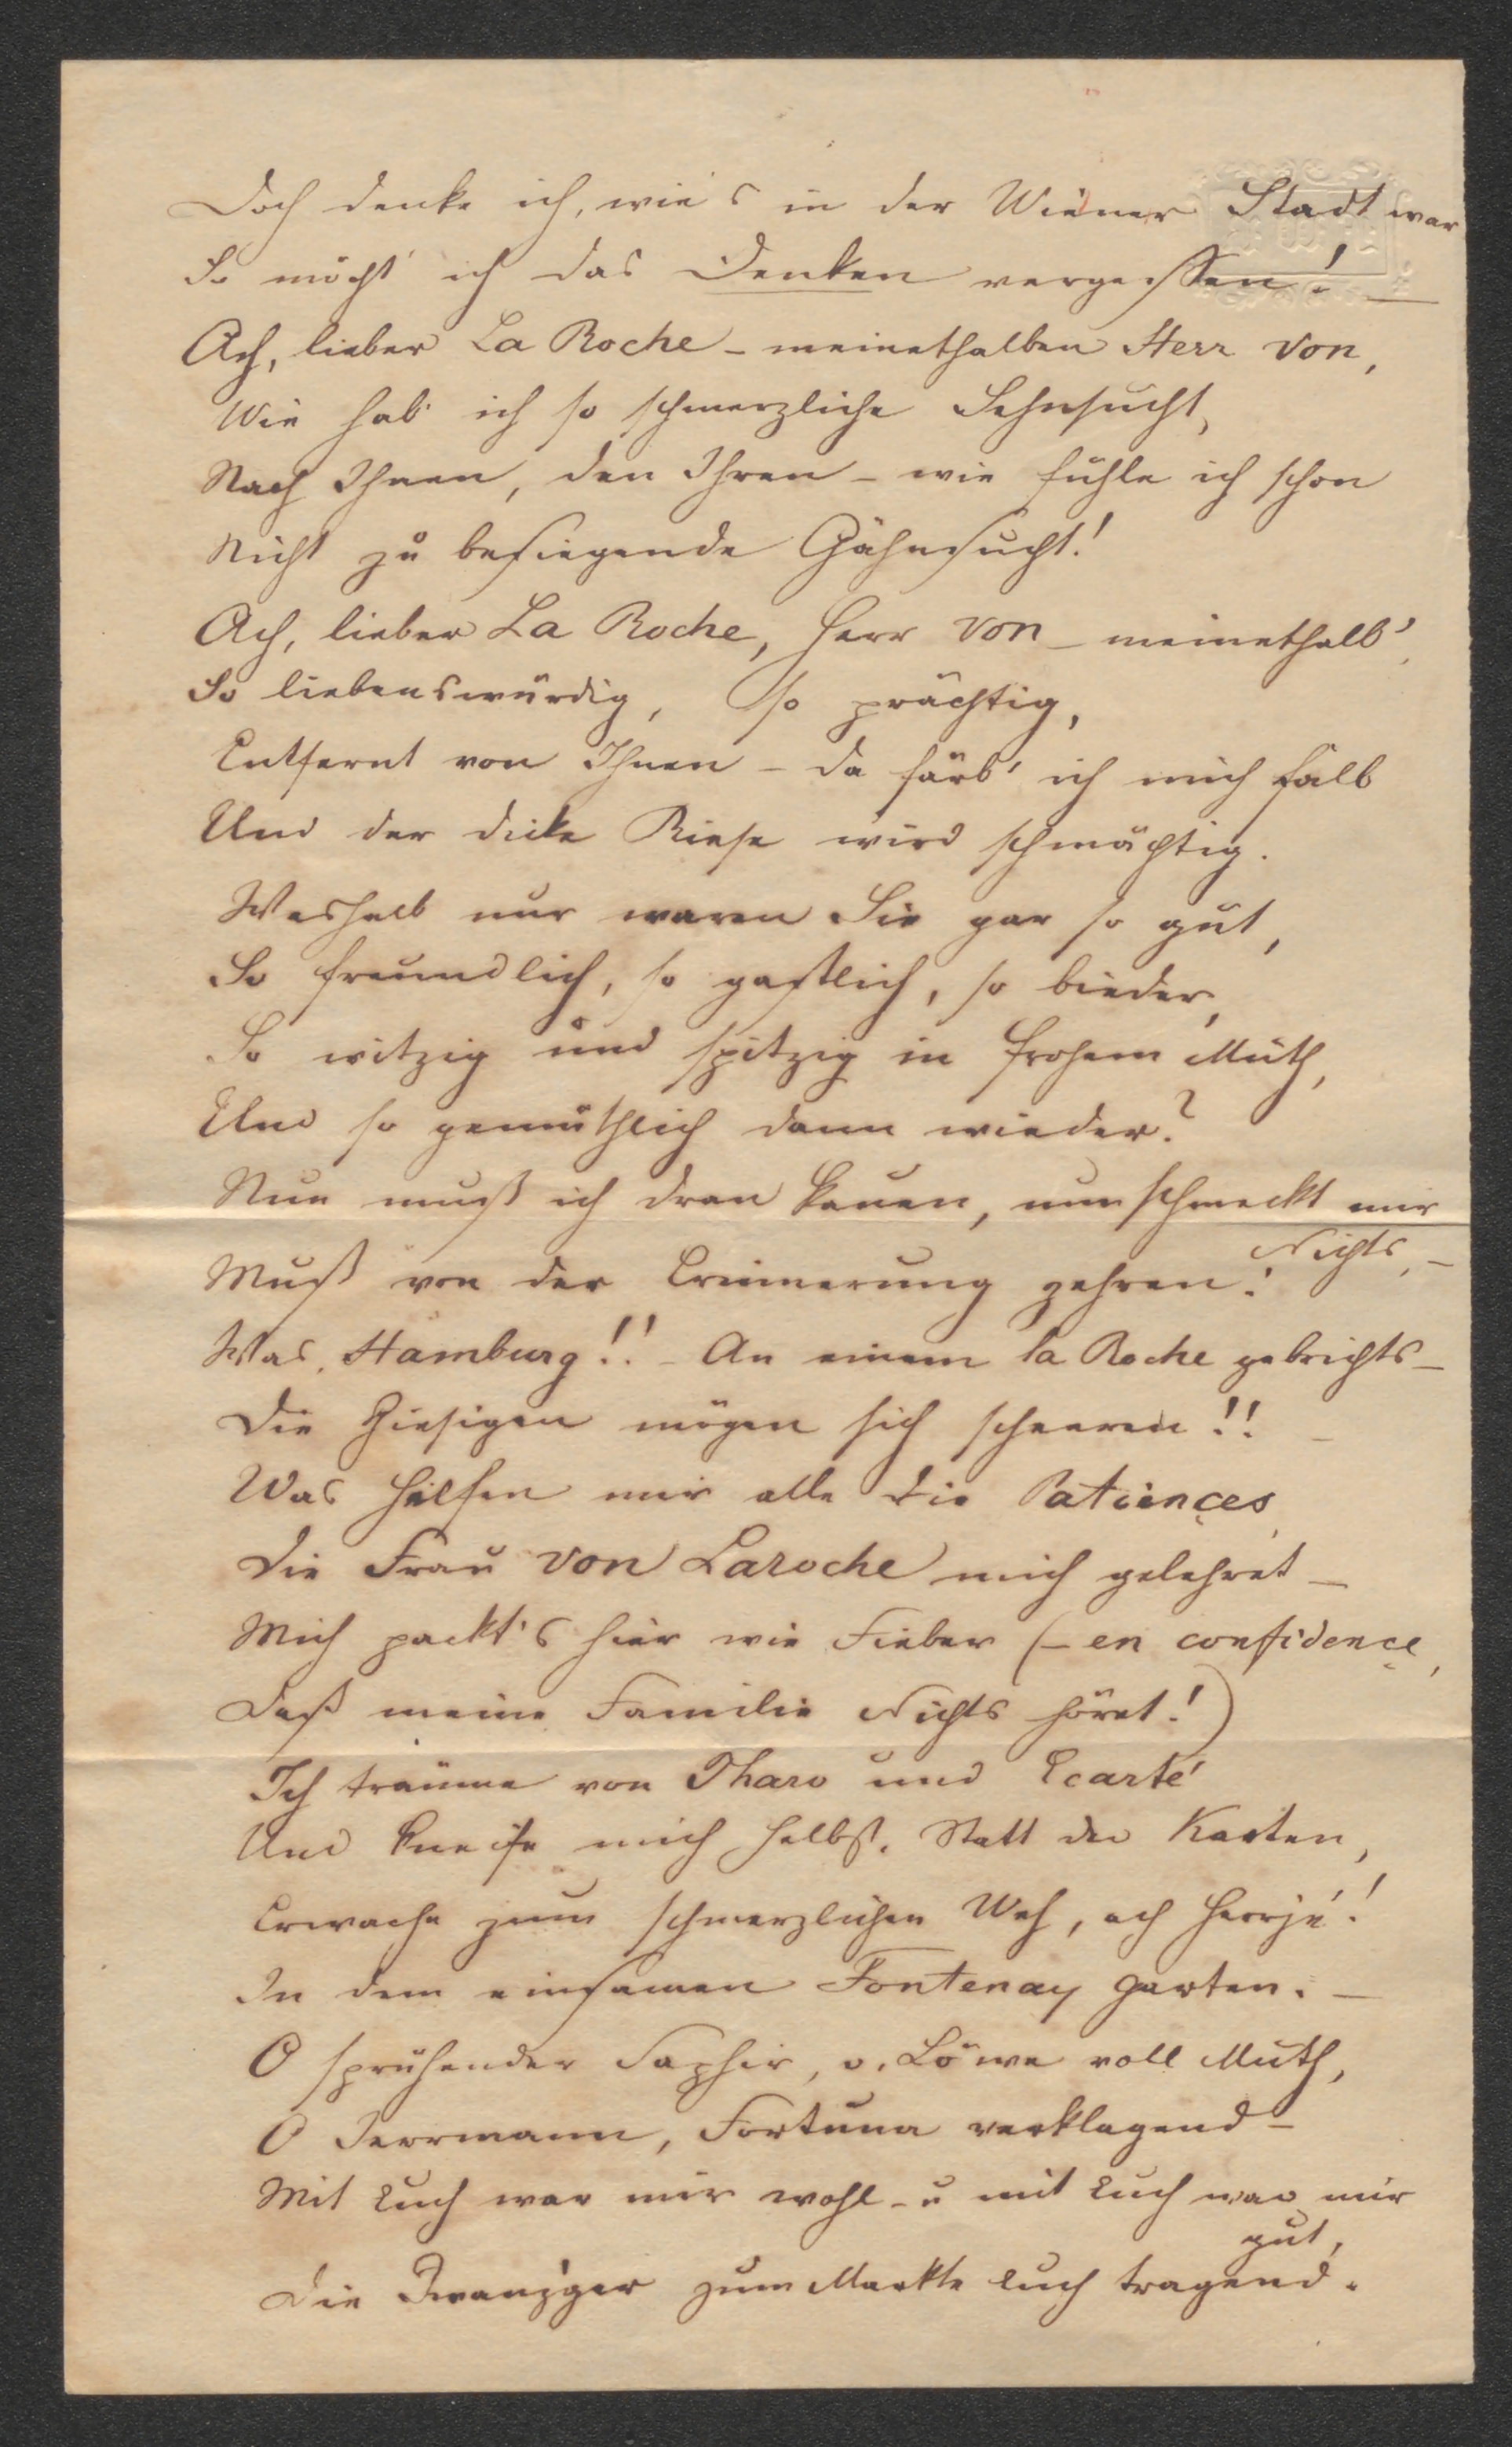 Doch denke ich, wie's in der Wiener Stadt war
So möcht' ich das Denken vergessen! —
Ach, lieber La Roche – meinethalben Herr von,
Wie hab' ich so schmerzliche Sehnsucht,
Nach Ihnen, den Ihren – wie fühle ich schon
Nicht zu besiegende Gähnsucht!
Ach, lieber La Roche, Herr von – meinethalb',
So liebenswürdig, so prächtig,
Entfernt von Ihnen – da färb' ich mich falb
Und der dicke Riese wird schmächtig.
Weshalb nur waren Sie gar so gut,
So freundlich, so gastlich, so bieder,
So witzig und spitzig in frohem Muth,
Und so gemüthlich dann wieder?
Nun muß ich dran kauen, nun schmeckt mir
Nichts, –
Muß von der Erinnerung zehren!
Was, Hamburg!! – An einem la Roche gebrichts –
Die Hiesigen mögen sich scheeren!! –
Was helfen mir alle die Patiençes,
Die Frau von Laroche mich gelehret –
Mich packt's hier wie Fieber (– en confidençe,
Daß meine Familie Nichts höret!)
Ich träume von Pharo und Ecarté
Und kneife mich selbst, Statt der Karten,
Erwache zum schmerzlichen Weh, ach Herrjé!
In dem einsamen Fontenay Garten. –
O sprühender Saphir, o, Löwe voll Muth,
O Jerrmann, Fortuna verklagend –
Mit Euch war mir wohl – u mit Euch war mir
gut,
Die Zwanz'ger zum Markte Euch tragend.